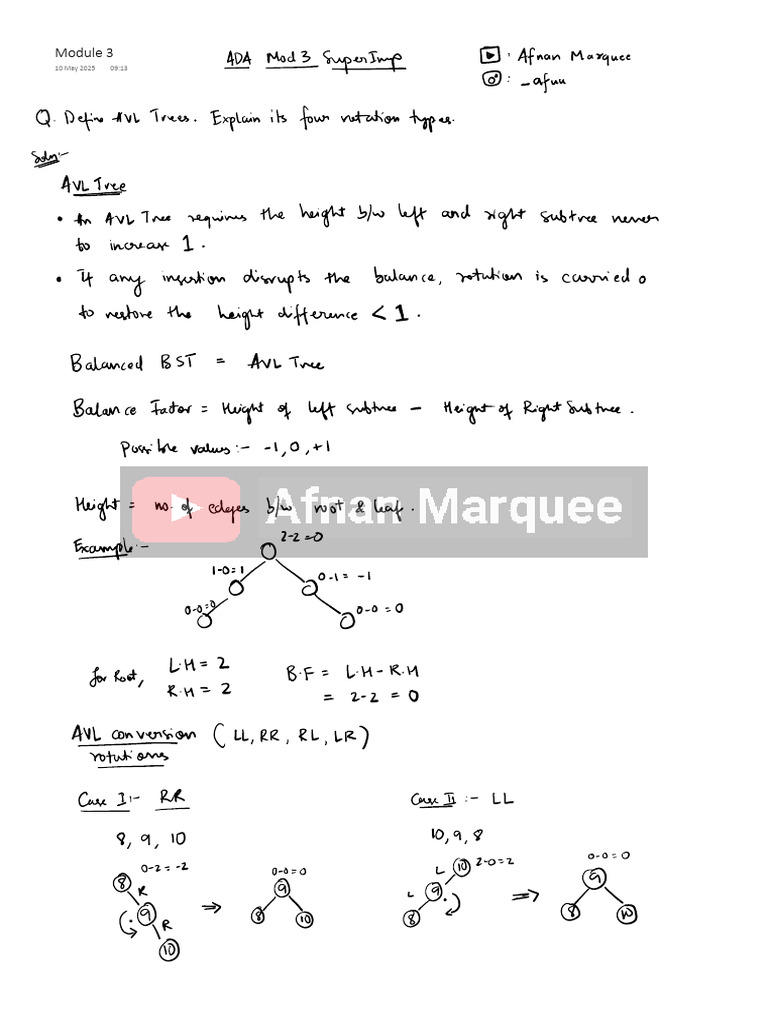 Module 3
10 May 2025 09:13
ADA Mod 3 SuperImp
: Afnan Marquee
: _afuu
Q. Define AVL Trees. Explain its four rotation types.
Soln:-
AVL Tree
• An AVL Tree requires the height b/w left and right subtree never
to increase 1.
• If any insertion disrupts the balance, rotation is carried o
to restore the height difference < 1.
Balanced BST = AVL Tree
Balance Factor = Height of left subtree - Height of Right Subtree.
Possible values:- -1, 0, +1
Height = no. of edges b/w root & leaf.
Afnan Marquee
Example:-
2-2=0
1-0=1
0-1= -1
0-0=0
0-0=0
for Root,
L.H = 2
R.H = 2
B.F = L.H - R.H
= 2-2 = 0
AVL conversion (LL, RR, RL, LR)
rotations
Case I:- RR
8, 9, 10
0-2=-2
8
R
9
R
10
⇒
0-0=0
9
8 10
Case II:- LL
10, 9, 8
10 2-0=2
L
9
L
8
⇒
0-0=0
9
8 10